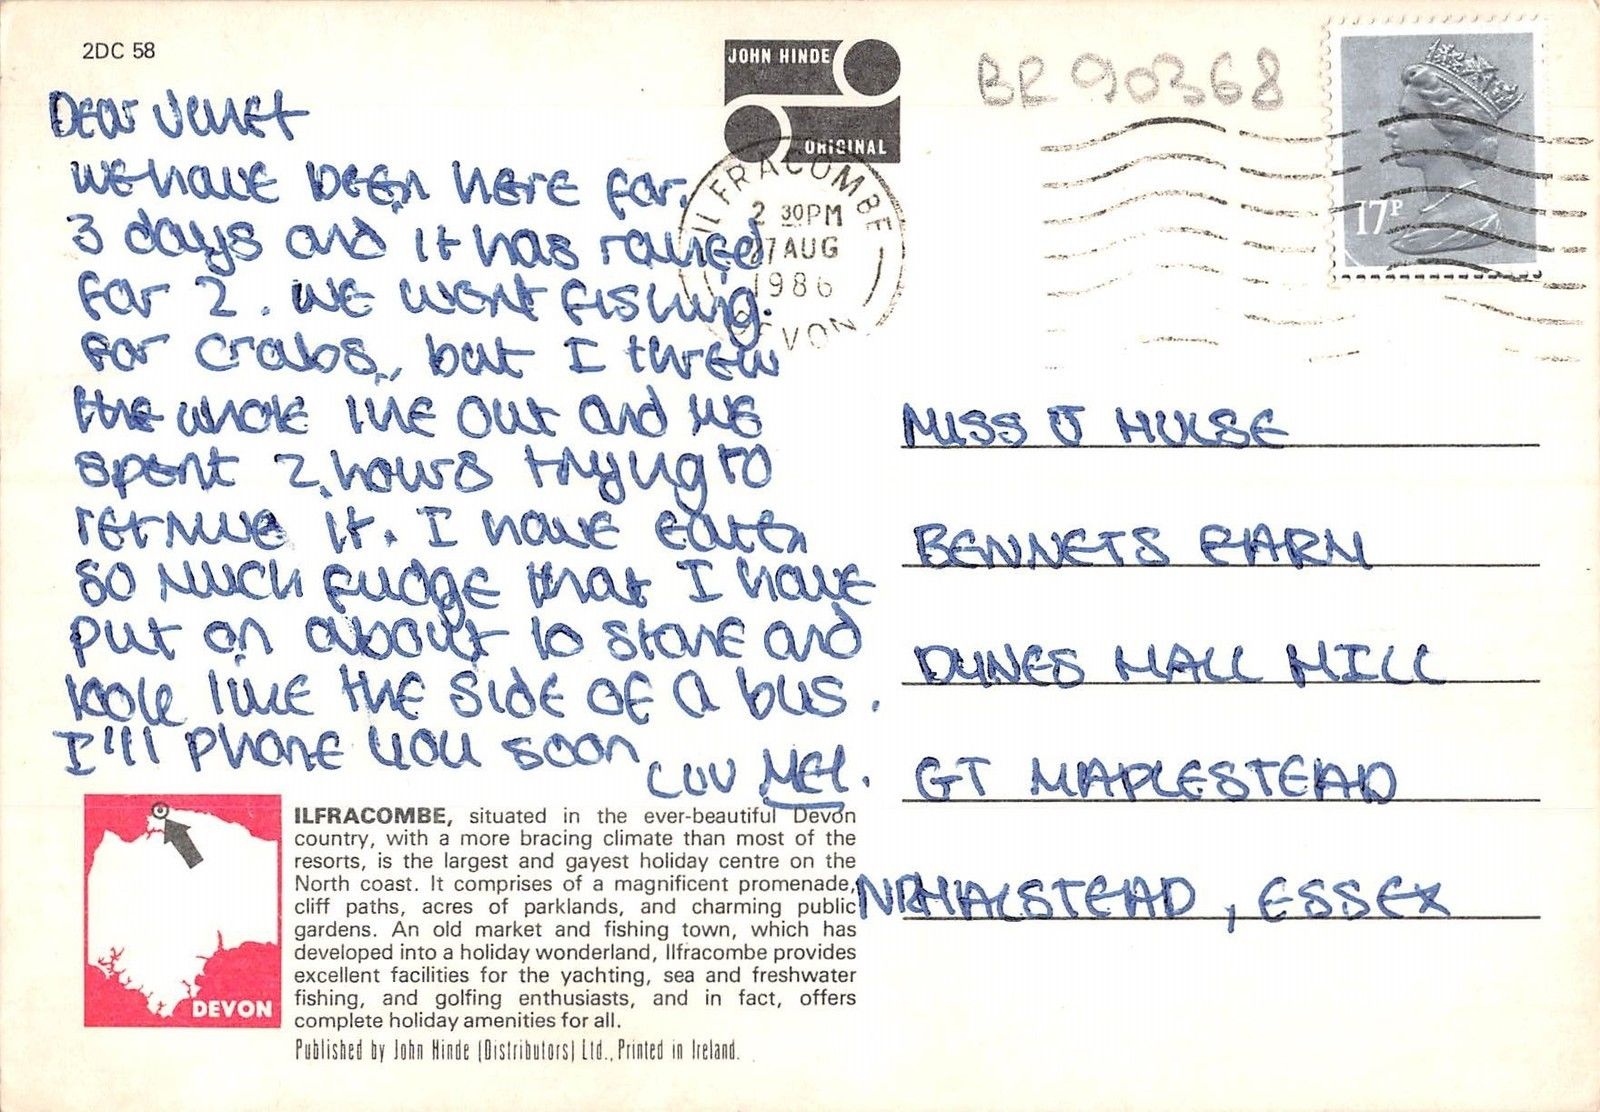 2DC 58
JOHN HINDE
ORIGINAL
BR 90368
ILFRACOMBE
2 30PM
27 AUG
1986
DEVON
17P
Dear Janet
we have been here for
3 days and it has rained
for 2. we went fishing
for crabs, but I threw
the whole line out and we
spent 2 hours trying to
retrieve it. I have eaten
so much fudge that I have
put on about 10 stone and
look like the side of a bus.
I'll phone you soon
luv Mel.
MISS J HULSE
BENNETS FARM
DYNES HALL HILL
GT MAPLESTEAD
NR HALSTEAD, ESSEX
DEVON
ILFRACOMBE, situated in the ever-beautiful Devon
country, with a more bracing climate than most of the
resorts, is the largest and gayest holiday centre on the
North coast. It comprises of a magnificent promenade,
cliff paths, acres of parklands, and charming public
gardens. An old market and fishing town, which has
developed into a holiday wonderland, Ilfracombe provides
excellent facilities for the yachting, sea and freshwater
fishing, and golfing enthusiasts, and in fact, offers
complete holiday amenities for all.
Published by John Hinde (Distributors) Ltd., Printed in Ireland.